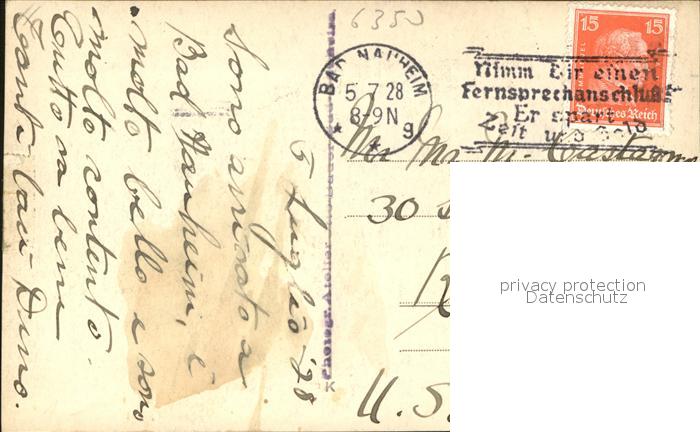 6350
15 15
Deutsches Reich
BAD NAUHEIM
5.7.28
8-9N
* * g
Nimm Dir einen
Fernsprechanschluß
Er spart
Zeit und Geld
5 Luglio '28
Sono arrivato a
Bad Nauheim, è
molto bello e sono
molto contento.
Tutto va bene
Tanti baci Dino.
Photogr. Atelier
K
Mr M.
30
U.S.
privacy protection
Datenschutz